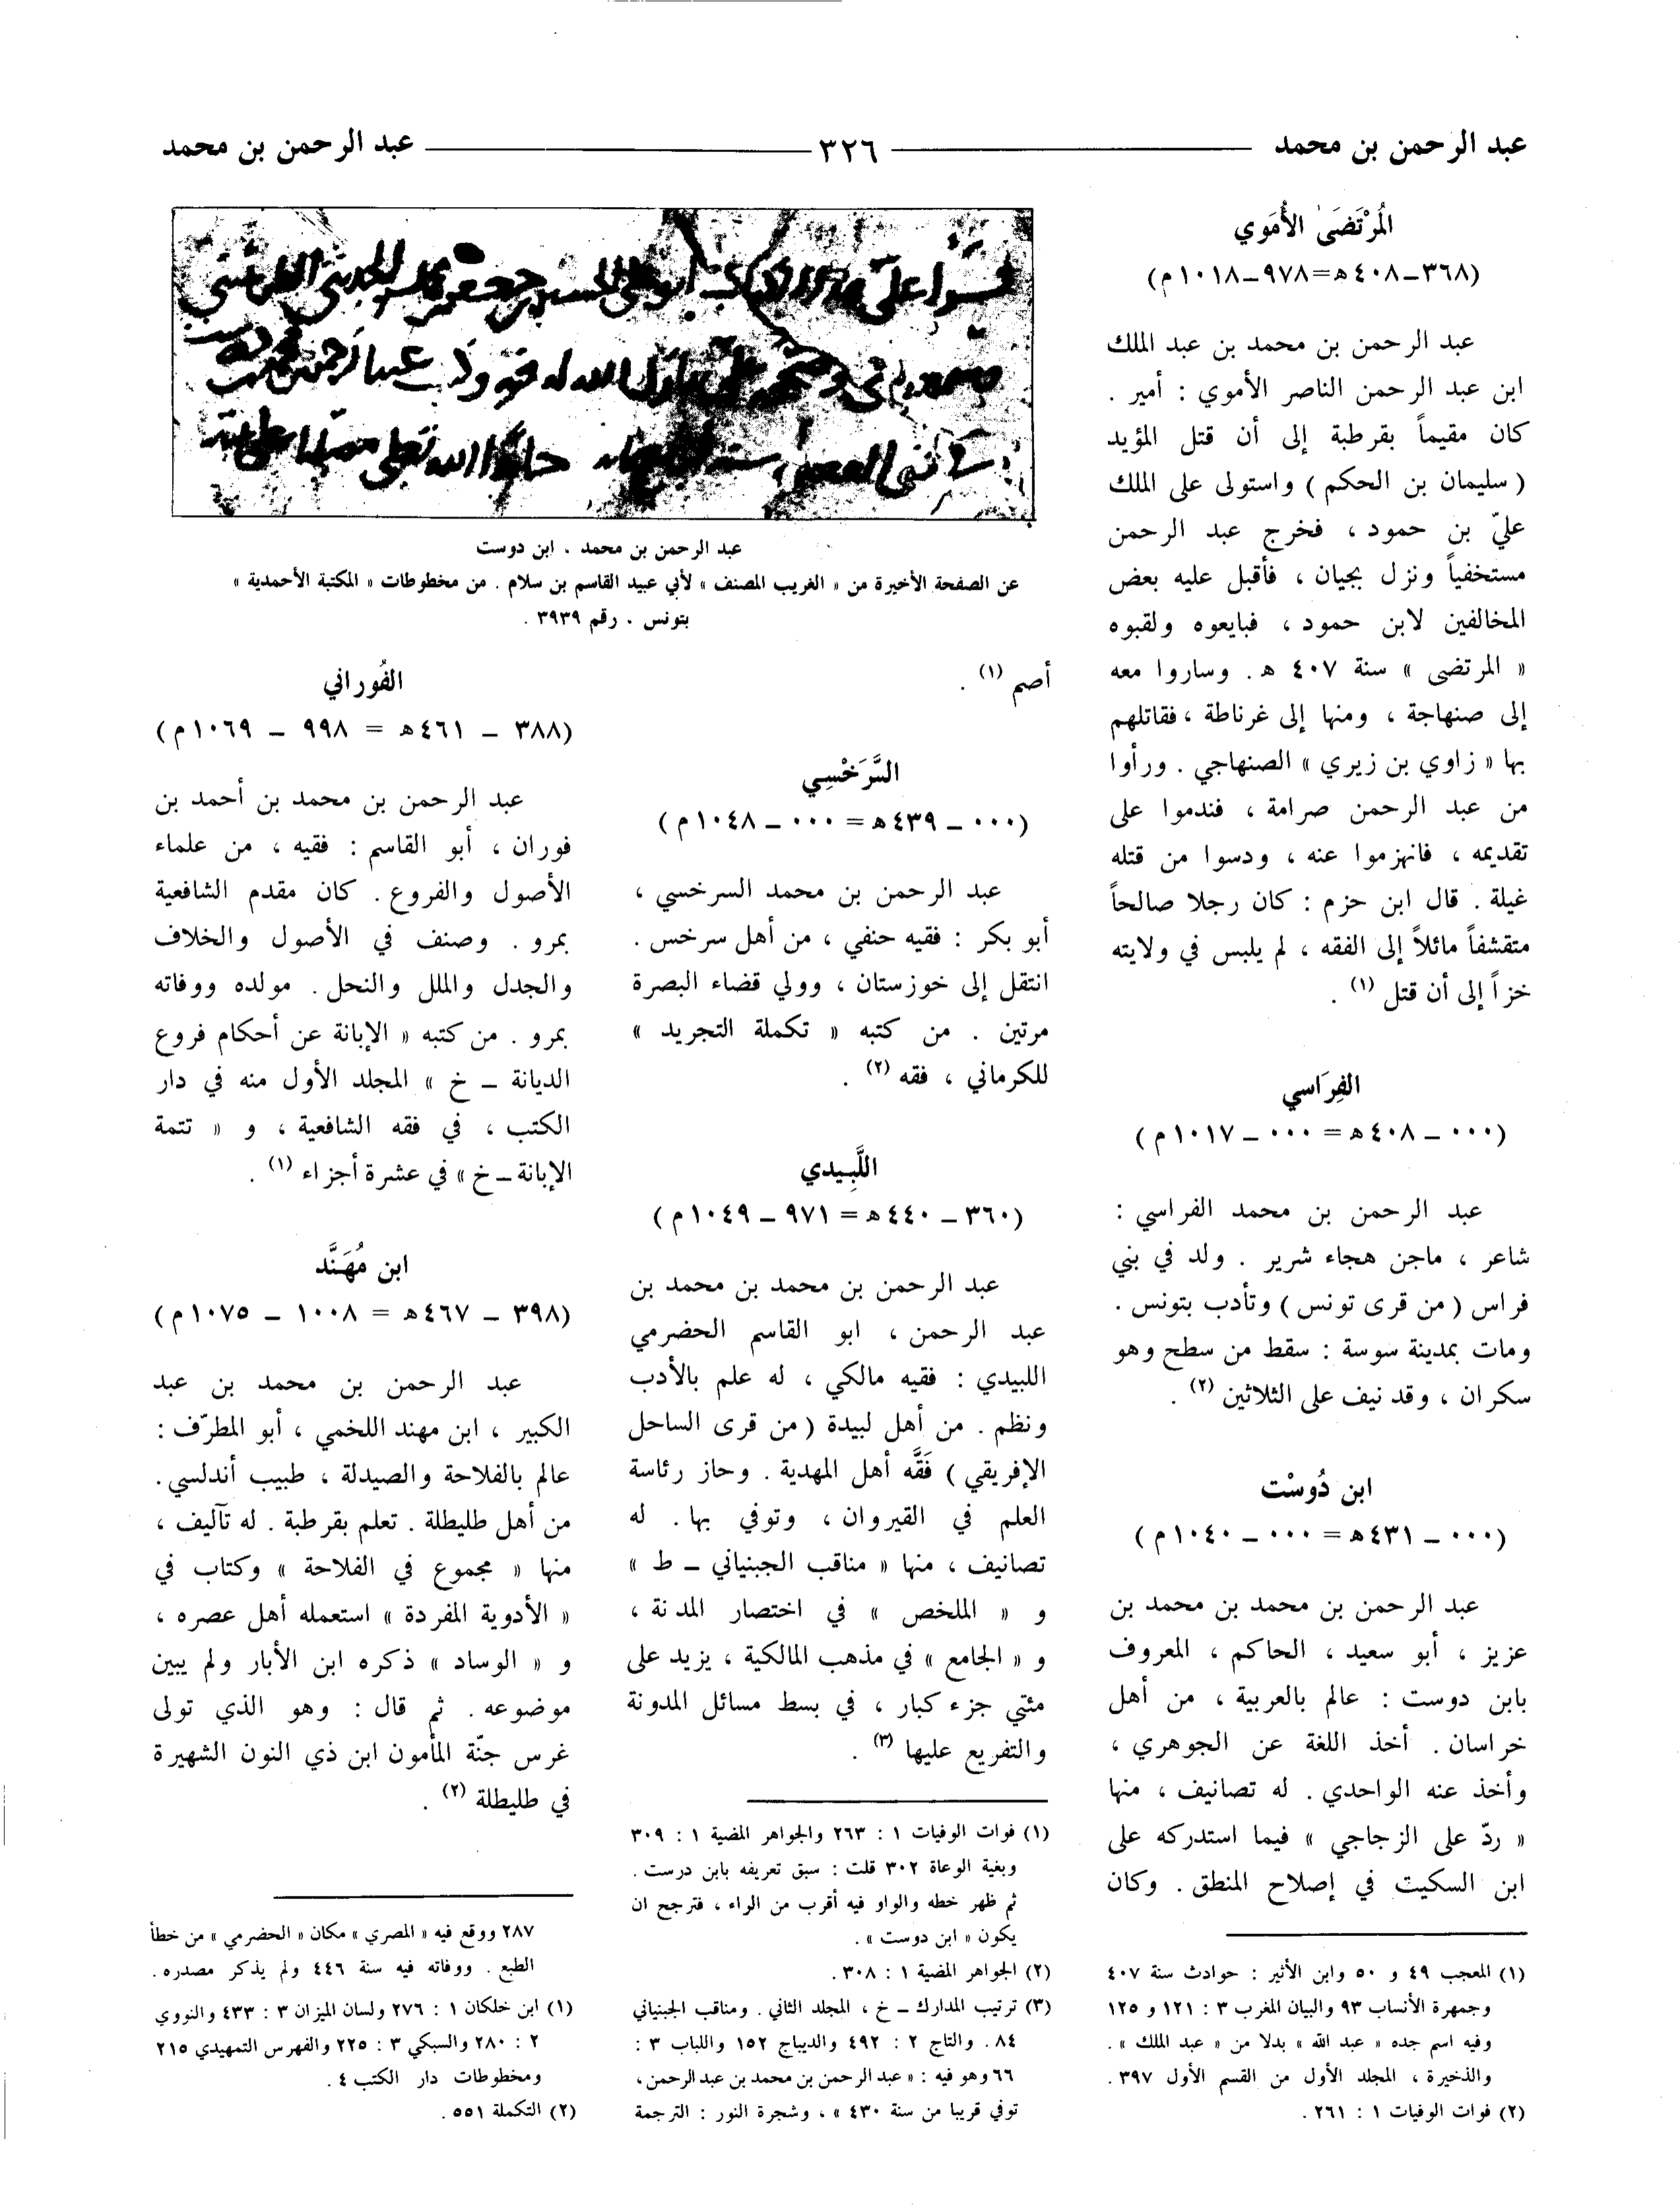 عبد الرحمن بن محمد ـــــ ٣٢٦ ـــــ عبد الرحمن بن محمد
المُرْتَضَىٰ الأُمَوي
(٣٦٨ــ٤٠٨هـ=٩٧٨ــ١٠١٨م)
عبد الرحمن بن محمد بن عبد الملك
ابن عبد الرحمن الناصر الأموي : أمير .
كان مقيماً بقرطبة إلى أن قتل المؤيد
( سليمان بن الحكم ) واستولى على الملك
عليّ بن حمود ، فخرج عبد الرحمن
مستخفياً ونزل بجيان ، فأقبل عليه بعض
المخالفين لابن حمود ، فبايعوه ولقبوه
« المرتضى » سنة ٤٠٧ هـ . وساروا معه
إلى صنهاجة ، ومنها إلى غرناطة ، فقاتلهم
بها « زاوي بن زيري » الصنهاجي . ورأوا
من عبد الرحمن صرامة ، فندموا على
تقديمه ، فانهزموا عنه ، ودسوا من قتله
غيلة . قال ابن حزم : كان رجلا صالحاً
متقشفاً مائلاً إلى الفقه ، لم يلبس في ولايته
خزاً إلى أن قتل (١) .
الفِرَاسي
(٠٠٠ ــ ٤٠٨هـ = ٠٠٠ ــ ١٠١٧م)
عبد الرحمن بن محمد الفراسي :
شاعر ، ماجن هجاء شرير . ولد في بني
فراس ( من قرى تونس ) وتأدب بتونس .
ومات بمدينة سوسة : سقط من سطح وهو
سكران ، وقد نيف على الثلاثين (٢) .
ابن دُوسْت
(٠٠٠ ــ ٤٣١هـ = ٠٠٠ ــ ١٠٤٠م)
عبد الرحمن بن محمد بن محمد بن
عزيز ، أبو سعيد ، الحاكم ، المعروف
بابن دوست : عالم بالعربية ، من أهل
خراسان . أخذ اللغة عن الجوهري ،
وأخذ عنه الواحدي . له تصانيف ، منها
« ردّ على الزجاجي » فيما استدركه على
ابن السكيت في إصلاح المنطق . وكان
(١) المعجب ٤٩ و ٥٠ وابن الأثير : حوادث سنة ٤٠٧
وجمهرة الأنساب ٩٣ والبيان المغرب ٣ : ١٢١ و ١٢٥
وفيه اسم جده « عبد الله » بدلا من « عبد الملك » .
والذخيرة ، المجلد الأول من القسم الأول ٣٩٧ .
(٢) فوات الوفيات ١ : ٢٦١ .
عبد الرحمن بن محمد . ابن دوست
عن الصفحة الأخيرة من « الغريب المصنف » لأبي عبيد القاسم بن سلام . من مخطوطات « المكتبة الأحمدية »
بتونس . رقم ٣٩٣٩ .
أصم (١) .
السَّرَخْسِي
(٠٠٠ ــ ٤٣٩هـ = ٠٠٠ ــ ١٠٤٨م)
عبد الرحمن بن محمد السرخسي ،
أبو بكر : فقيه حنفي ، من أهل سرخس .
انتقل إلى خوزستان ، وولي قضاء البصرة
مرتين . من كتبه « تكملة التجريد »
للكرماني ، فقه (٢) .
اللَّبِيدي
(٣٦٠ ــ ٤٤٠هـ = ٩٧١ ــ ١٠٤٩م)
عبد الرحمن بن محمد بن محمد بن
عبد الرحمن ، ابو القاسم الحضرمي
اللبيدي : فقيه مالكي ، له علم بالأدب
ونظم . من أهل لبيدة ( من قرى الساحل
الإفريقي ) فَقَّه أهل المهدية . وحاز رئاسة
العلم في القيروان ، وتوفي بها . له
تصانيف ، منها « مناقب الجبنياني ــ ط »
و « الملخص » في اختصار المدنة ،
و « الجامع » في مذهب المالكية ، يزيد على
مئتي جزء كبار ، في بسط مسائل المدونة
والتفريع عليها (٣) .
(١) فوات الوفيات ١ : ٢٦٣ والجواهر المضية ١ : ٣٠٩
وبغية الوعاة ٣٠٢ قلت : سبق تعريفه بابن درست .
ثم ظهر خطه والواو فيه أقرب من الراء ، فترجح ان
يكون « ابن دوست » .
(٢) الجواهر المضية ١ : ٣٠٨ .
(٣) ترتيب المدارك ــ خ ، المجلد الثاني . ومناقب الجبنياني
٨٤ . والتاج ٢ : ٤٩٢ والديباج ١٥٢ واللباب ٣ :
٦٦ وهو فيه : « عبد الرحمن بن محمد بن عبد الرحمن ،
توفي قريبا من سنة ٤٣٠ » ، وشجرة النور : الترجمة
الفُوراني
(٣٨٨ ــ ٤٦١هـ = ٩٩٨ ــ ١٠٦٩م)
عبد الرحمن بن محمد بن أحمد بن
فوران ، أبو القاسم : فقيه ، من علماء
الأصول والفروع . كان مقدم الشافعية
بمرو . وصنف في الأصول والخلاف
والجدل والملل والنحل . مولده ووفاته
بمرو . من كتبه « الإبانة عن أحكام فروع
الديانة ــ خ » المجلد الأول منه في دار
الكتب ، في فقه الشافعية ، و « تتمة
الإبانة ــ خ » في عشرة أجزاء (١) .
ابن مُهَنَّد
(٣٩٨ ــ ٤٦٧هـ = ١٠٠٨ ــ ١٠٧٥م)
عبد الرحمن بن محمد بن عبد
الكبير ، ابن مهند اللخمي ، أبو المطرّف :
عالم بالفلاحة والصيدلة ، طبيب أندلسي .
من أهل طليطلة . تعلم بقرطبة . له تآليف ،
منها « مجموع في الفلاحة » وكتاب في
« الأدوية المفردة » استعمله أهل عصره ،
و « الوساد » ذكره ابن الأبار ولم يبين
موضوعه . ثم قال : وهو الذي تولى
غرس جنّة المأمون ابن ذي النون الشهيرة
في طليطلة (٢) .
٢٨٧ ووقع فيه « المصري » مكان « الحضرمي » من خطأ
الطبع . ووفاته فيه سنة ٤٤٦ ولم يذكر مصدره .
(١) ابن خلكان ١ : ٢٧٦ ولسان الميزان ٣ : ٤٣٣ والنووي
٢ : ٢٨٠ والسبكي ٣ : ٢٢٥ والفهرس التمهيدي ٢١٥
ومخطوطات دار الكتب ٤ .
(٢) التكملة ٥٥١ .